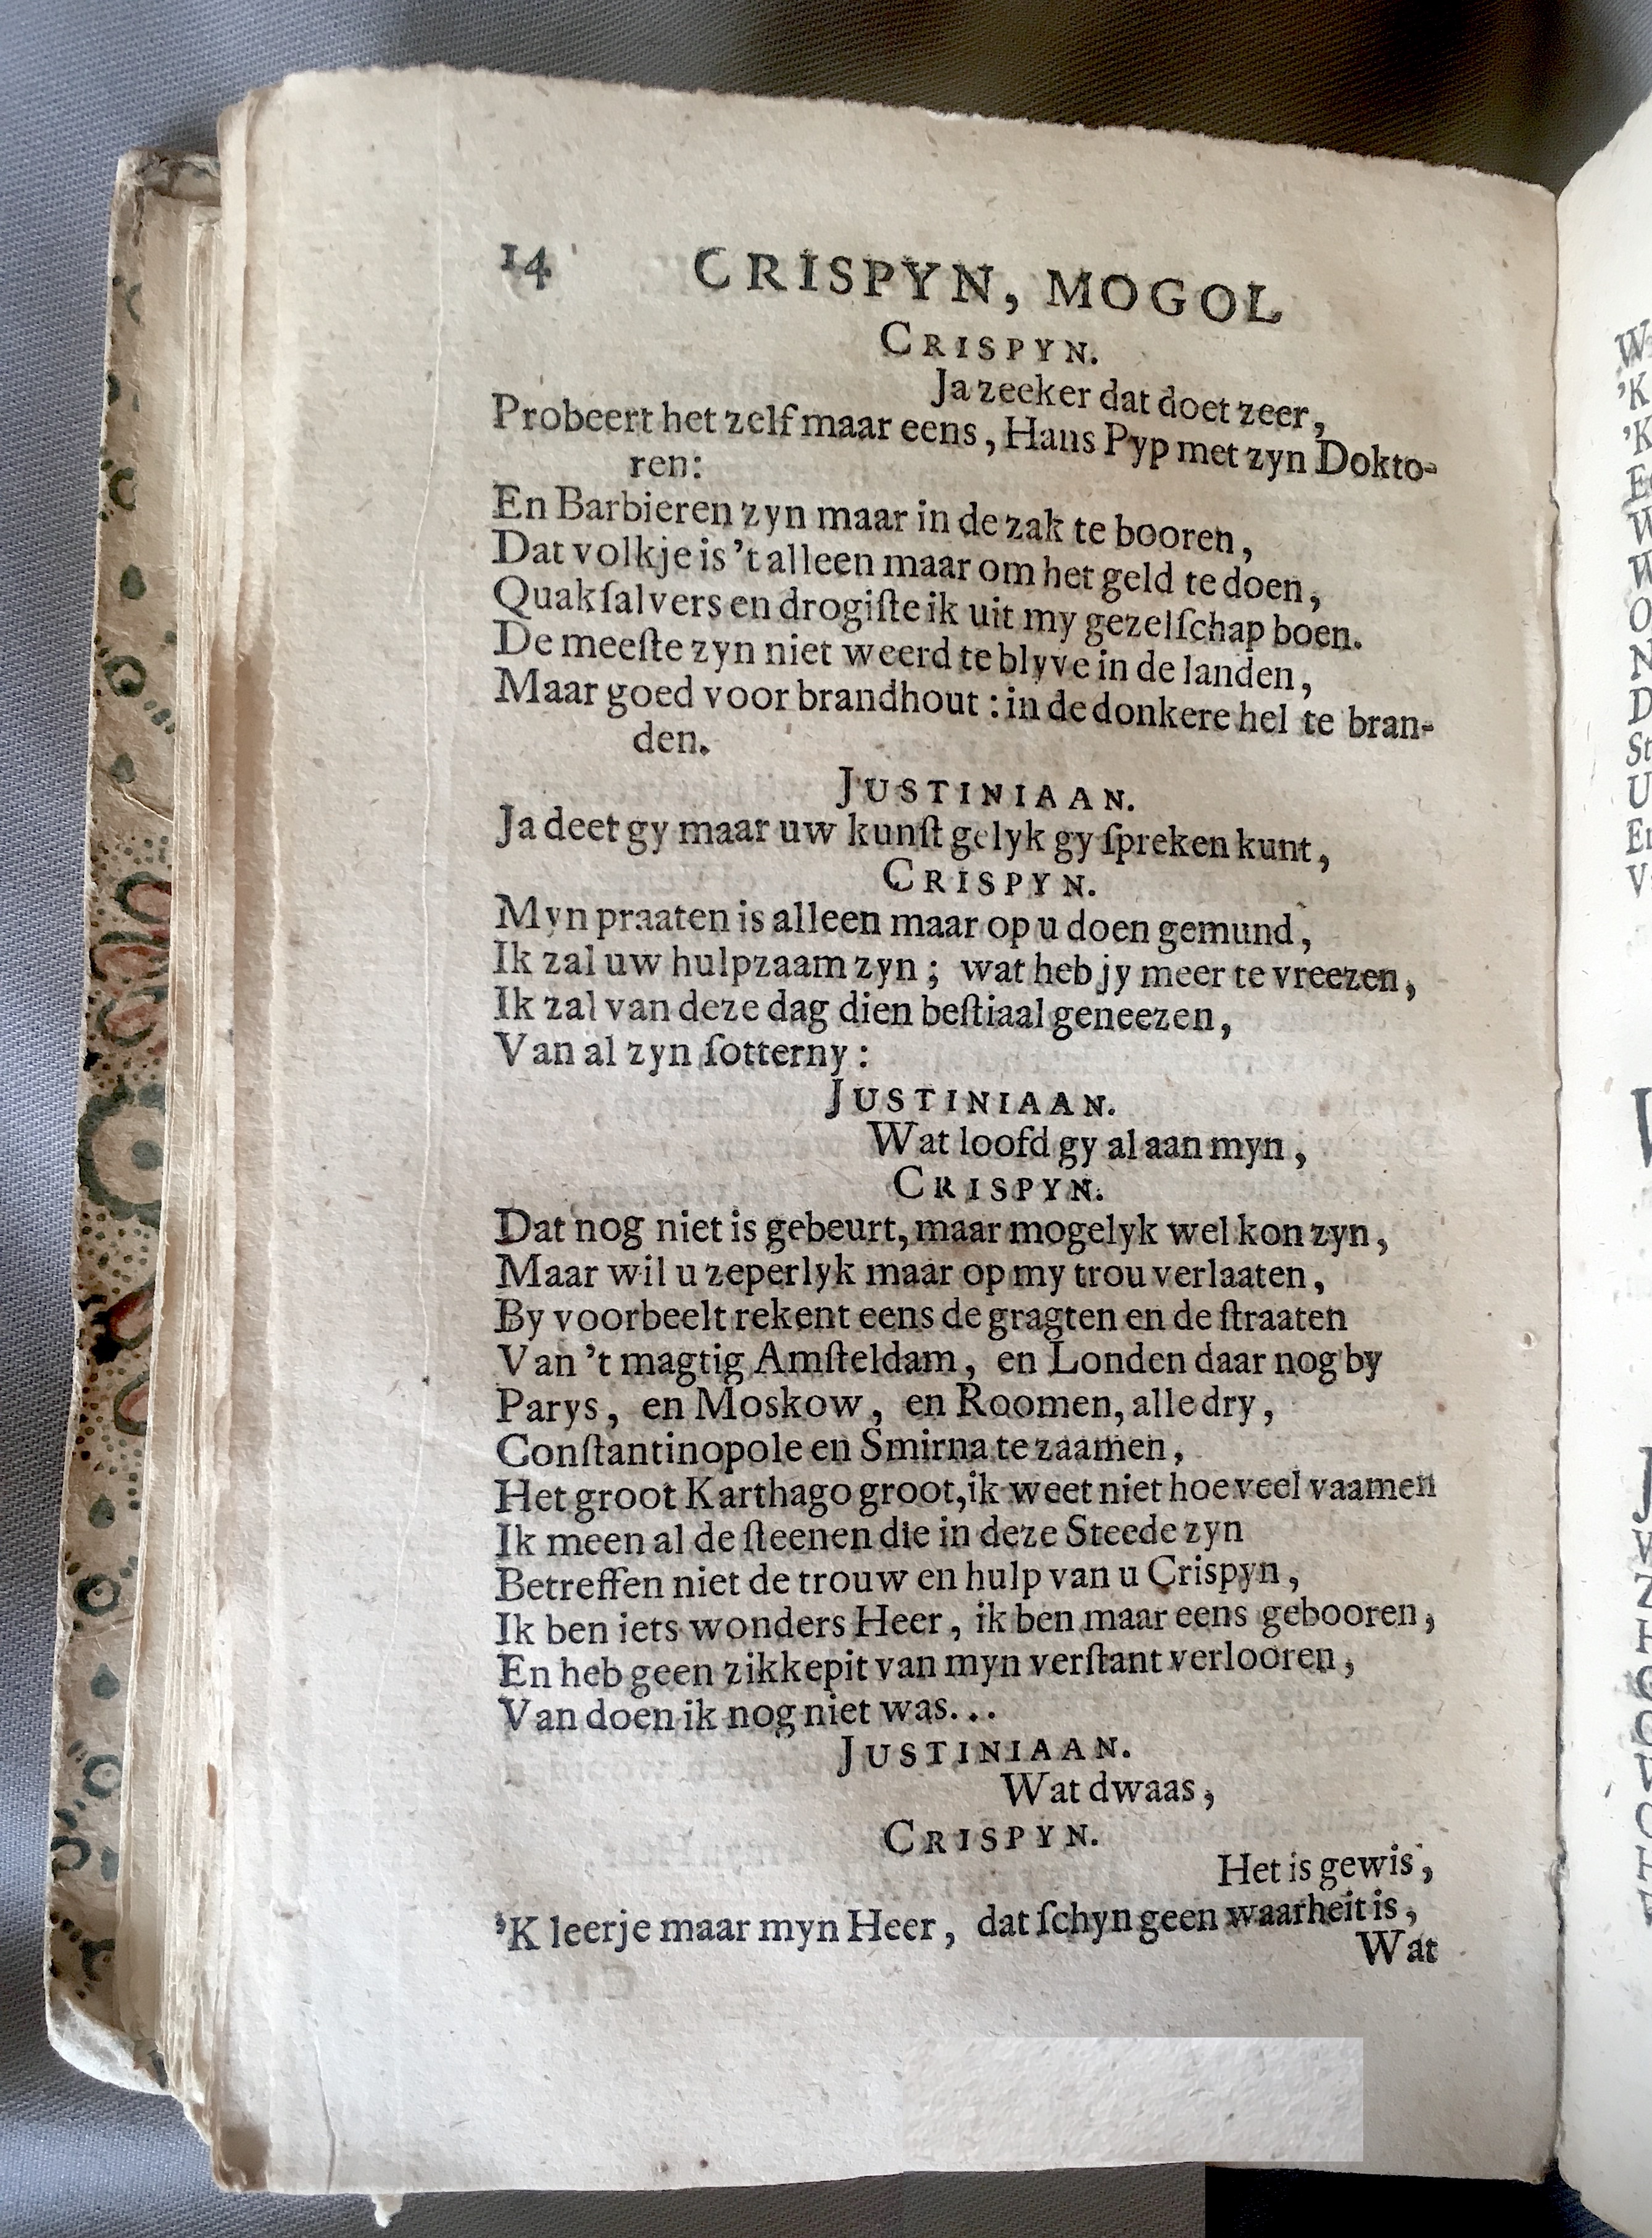 14 CRISPYN, MOGOL
CRISPYN.
Ja zeeker dat doet zeer,
Probeert het zelf maar eens, Hans Pyp met zyn Dokto-
ren:
En Barbieren zyn maar in de zak te booren,
Dat volkje is 't alleen maar om het geld te doen,
Quakſalvers en drogiſte ik uit my gezelſchap boen.
De meeſte zyn niet weerd te blyve in de landen,
Maar goed voor brandhout: in de donkere hel te bran-
den.
JUSTINIAAN.
Ja deet gy maar uw kunſt gelyk gy ſpreken kunt,
CRISPYN.
Myn praaten is alleen maar op u doen gemund,
Ik zal uw hulpzaam zyn; wat heb jy meer te vreezen,
Ik zal van deze dag dien beſtiaal geneezen,
Van al zyn ſotterny:
JUSTINIAAN.
Wat loofd gy al aan myn,
CRISPYN.
Dat nog niet is gebeurt, maar mogelyk wel kon zyn,
Maar wil u zeperlyk maar op my trou verlaaten,
By voorbeelt rekent eens de gragten en de ſtraaten
Van 't magtig Amſteldam, en Londen daar nog by
Parys, en Moskow, en Roomen, alle dry,
Conſtantinopole en Smirna te zaamen,
Het groot Karthago groot, ik weet niet hoe veel vaamen
Ik meen al de ſteenen die in deze Steede zyn
Betreffen niet de trouw en hulp van u Crispyn,
Ik ben iets wonders Heer, ik ben maar eens gebooren,
En heb geen zikkepit van myn verſtant verlooren,
Van doen ik nog niet was...
JUSTINIAAN.
Wat dwaas,
CRISPYN.
Het is gewis,
'K leer je maar myn Heer, dat ſchyn geen waarheit is,
Wat